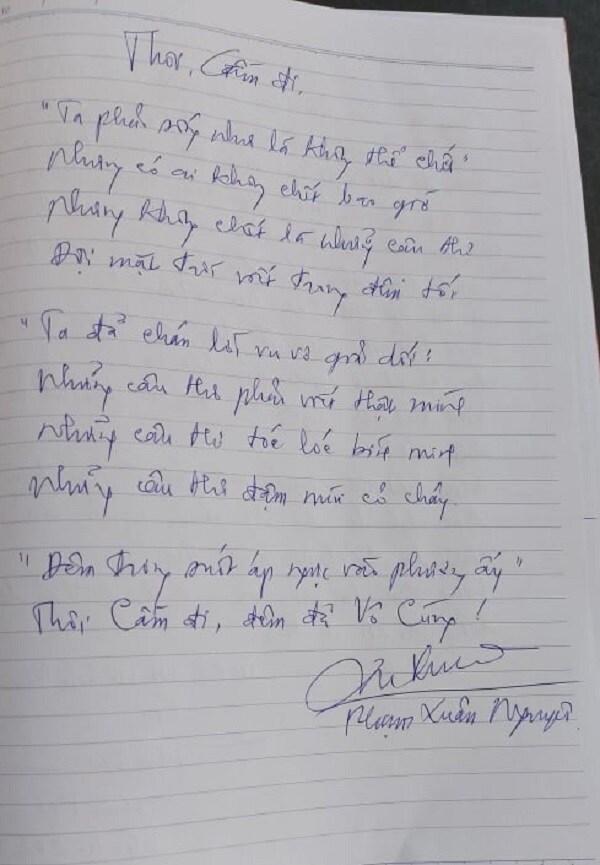 Thôi, Cầm đi,
"Ta phải sống như là không thể chết"
Nhưng có ai không chết bao giờ
Nhưng không chết là những câu thơ
Đợi mặt trời viết trong đêm tối
"Ta đã chán lời vu vơ giả dối"
Những câu thơ phải viết thật mình
Những câu thơ toé loé bình minh
Những câu thơ đậm mùi cỏ cháy
"Đêm trong suốt áp ngực vào phương ấy"
Thôi, Cầm đi, đêm đã Vô Cùng!
Phạm Xuân Nguyên